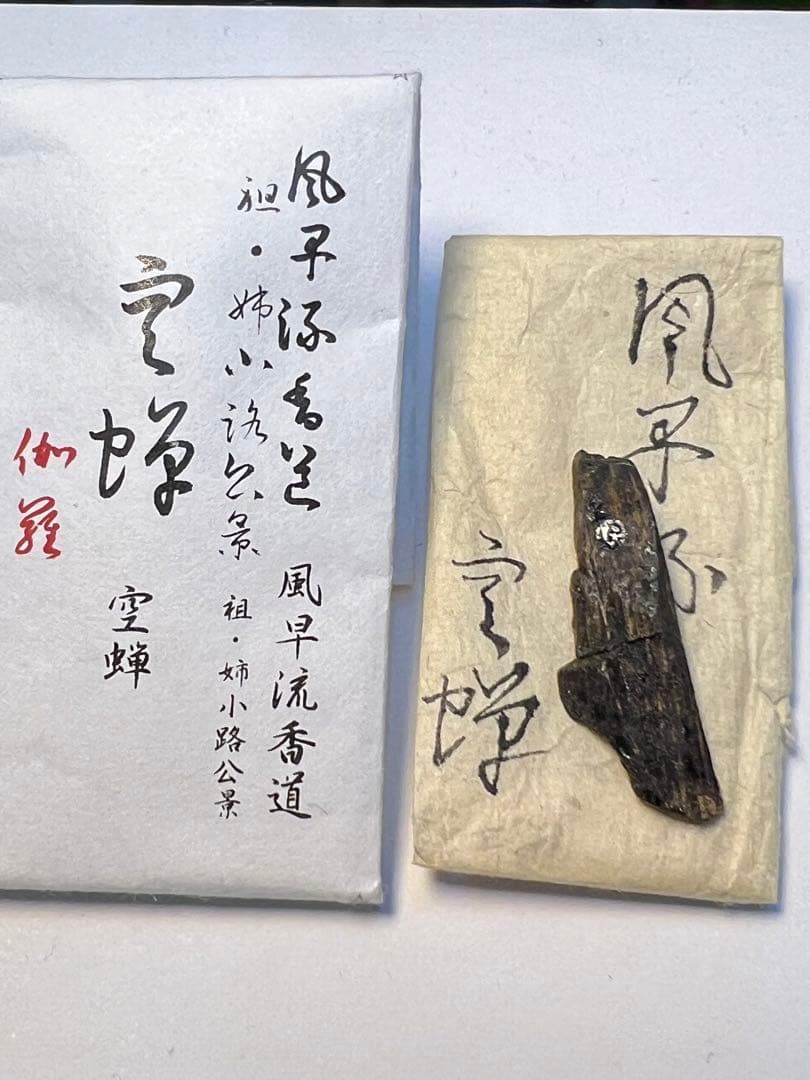 風早流香道 風早流香道
祖・姉小路公景 祖・姉小路公景
空蝉
空蝉
伽羅
風早流
空蝉